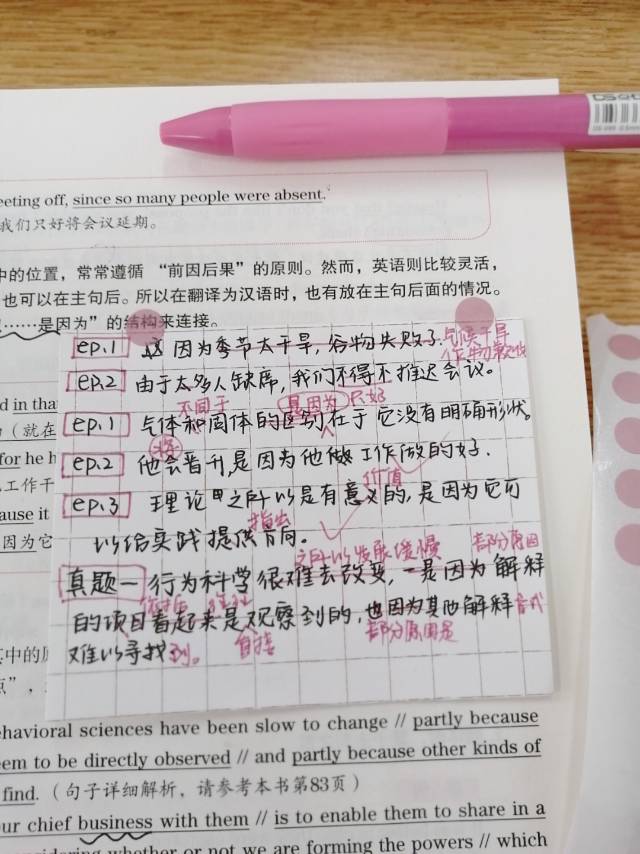 eeting off, since so many people were absent.
我们只好将会议延期。
中的位置，常常遵循 “前因后果”的原则。然而，英语则比较灵活，
也可以在主句后。所以在翻译为汉语时，也有放在主句后面的情况。
……是因为”的结构来连接。
ep.1 因为季节太干旱，谷物失败了. 气候干旱
作物
ep.2 由于太多人缺席，我们不得不推迟会议。
不同于 是因为 只好
ep.1 气体和固体的区别在于它没有明确形状。
将
ep.2 他会晋升,是因为他做工作做的好.
价值
ep.3 理论之所以是有意义的，是因为它可
以给实践提供方向。
指出
之所以发展缓慢 部分原因
真题一 行为科学很难去改变，是因为解释
的项目看起来是观察到的，也因为其他解释
直接 部分原因是
难以寻找到。
d in tha
（就在
for he h
工作干
ause it
因为它
其中的
点”，
havioral sciences have been slow to change // partly because
em to be directly observed // and partly because other kinds of
find.（句子详细解析，请参考本书第83页）
ur chief business with them // is to enable them to share in a
nsidering whether or not we are forming the powers // which